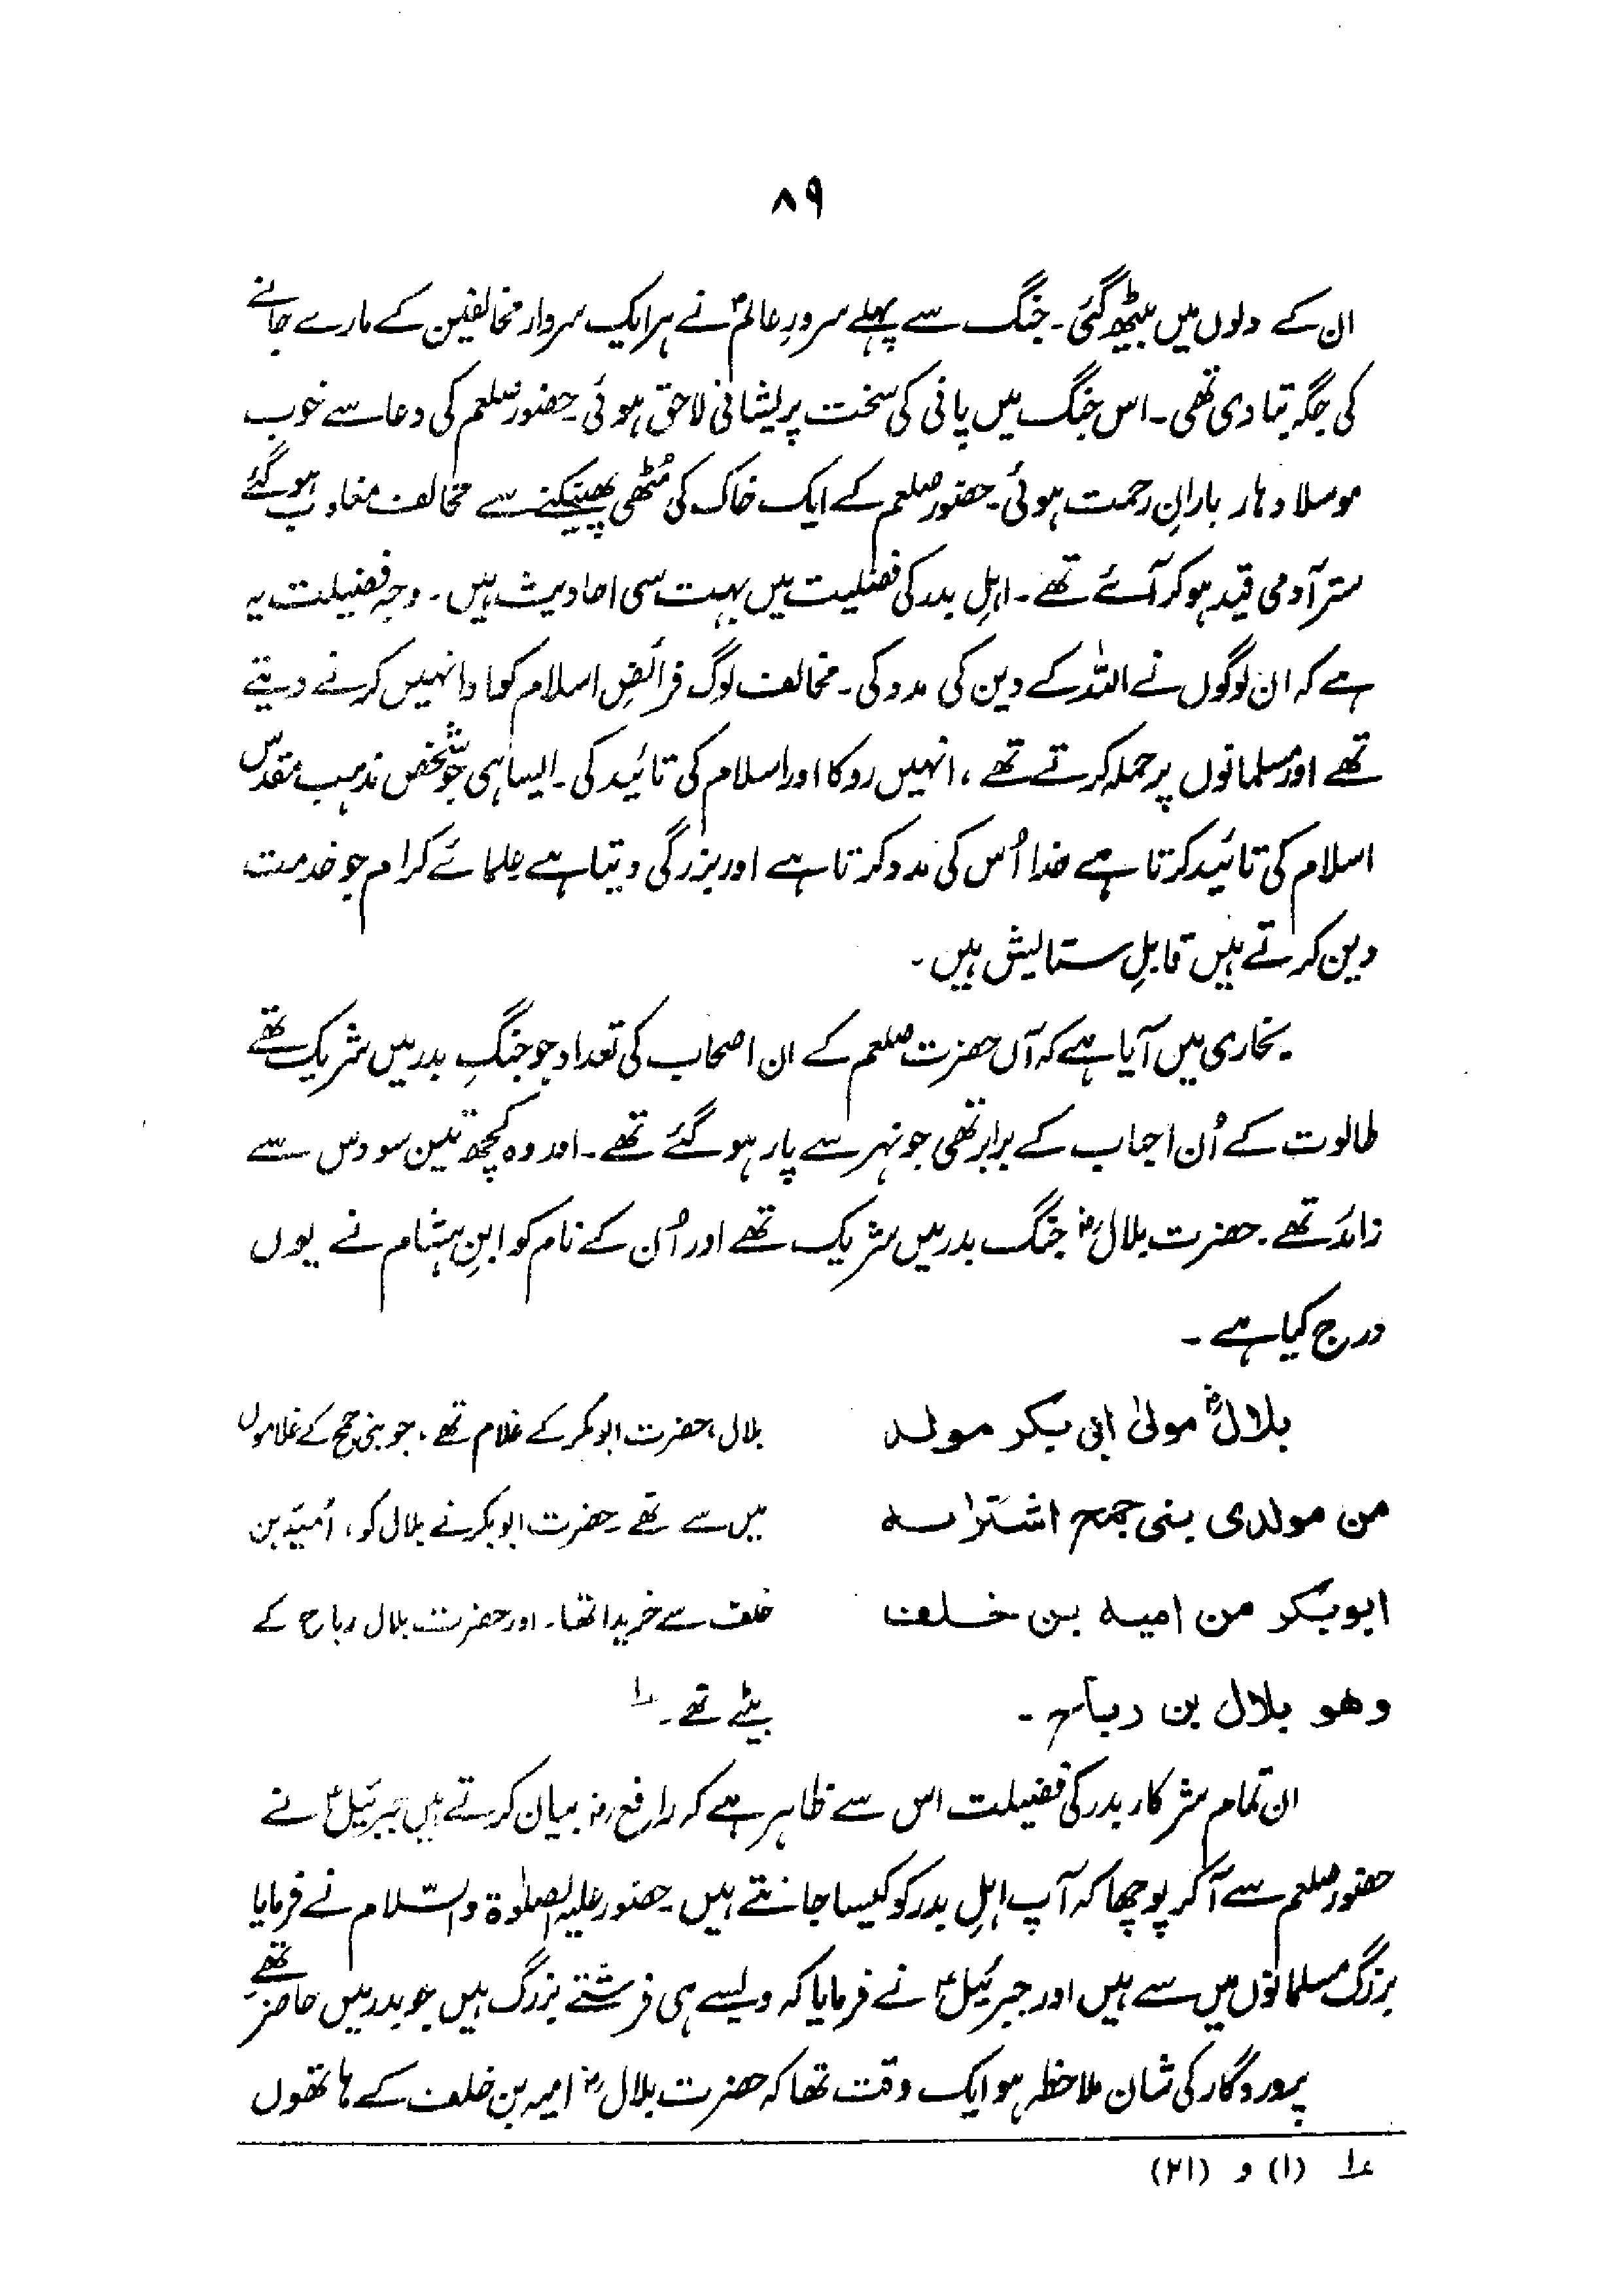 ۸۹
ان کے دلوں میں بیٹھ گئی۔ جنگ سے پہلے سرورِ عالمؐ نے ہر ایک سردار مخالفین کے مارے جانے
کی جگہ بتا دی تھی۔ اس جنگ میں پانی کی سخت پریشانی لاحق ہوئی۔ حضور صلعم کی دعا سے خوب
موسلا دہار بارانِ رحمت ہوئی۔ حضور صلعم کے ایک خاک کی مُٹھی پھینکنے سے مخالف مغلوب ہو گئے
ستر آدمی قید ہو کر آئے تھے۔ اہلِ بدر کی فضیلت میں بہت سی احادیث ہیں۔ وجہِ فضیلت یہ
ہے کہ ان لوگوں نے اللہ کے دین کی مدد کی۔ مخالف لوگ فرائضِ اسلام کو ادا نہیں کرنے دیتے
تھے اور مسلمانوں پر حملہ کرتے تھے، انہیں روکا اور اسلام کی تائید کی۔ ایسا ہی جو شخص مذہب مقدّس
اسلام کی تائید کرتا ہے خدا اُس کی مدد کرتا ہے اور بزرگی دیتا ہے علمائے کرام جو خدمت
دین کرتے ہیں قابلِ ستایش ہیں۔
بخاری میں آیا ہے کہ آں حضرت صلعم کے ان اصحاب کی تعداد جو جنگِ بدر میں شریک تھے
طالوت کے اُن احباب کے برابر تھی جو نہر سے پار ہو گئے تھے۔ اور وہ کچھ تین سو دس سے
زائد تھے۔ حضرت بلالؓ جنگ بدر میں شریک تھے اور اُن کے نام کو ابنِ ہشام نے یوں
درج کیا ہے۔
بلالؓ مولیٰ ابی بکر مولد
من مولدی بنی جمح اشتراہ
ابوبکر من امیہ بن خلف
وھو بلال بن رباح۔
بلال، حضرت ابوبکر کے غلام تھے، جو بنی جمح کے غلاموں
میں سے تھے۔ حضرت ابوبکر نے بلال کو، اُمیّہ بن
خلف سے خریدا تھا۔ اور حضرت بلال رباح کے
بیٹے تھے۔ ؎۱
ان تمام شرکار بدر کی فضیلت اس سے ظاہر ہے کہ رافعؓ بیان کرتے ہیں جبرئیلؑ نے
حضور صلعم سے آکر پوچھا کہ آپ اہلِ بدر کو کیسا جانتے ہیں۔ حضور علیہ الصلوٰۃ والسّلام نے فرمایا
بزرگ مسلمانوں میں سے ہیں اور جبرئیلؑ نے فرمایا کہ ویسے ہی فرشتے بزرگ ہیں جو بدر میں حاضر تھے
پروردگار کی شان ملاحظہ ہو ایک وقت تھا کہ حضرت بلالؓ امیہ بن خلف کے ہاتھوں
؎۱ (۱) و (۲۱)